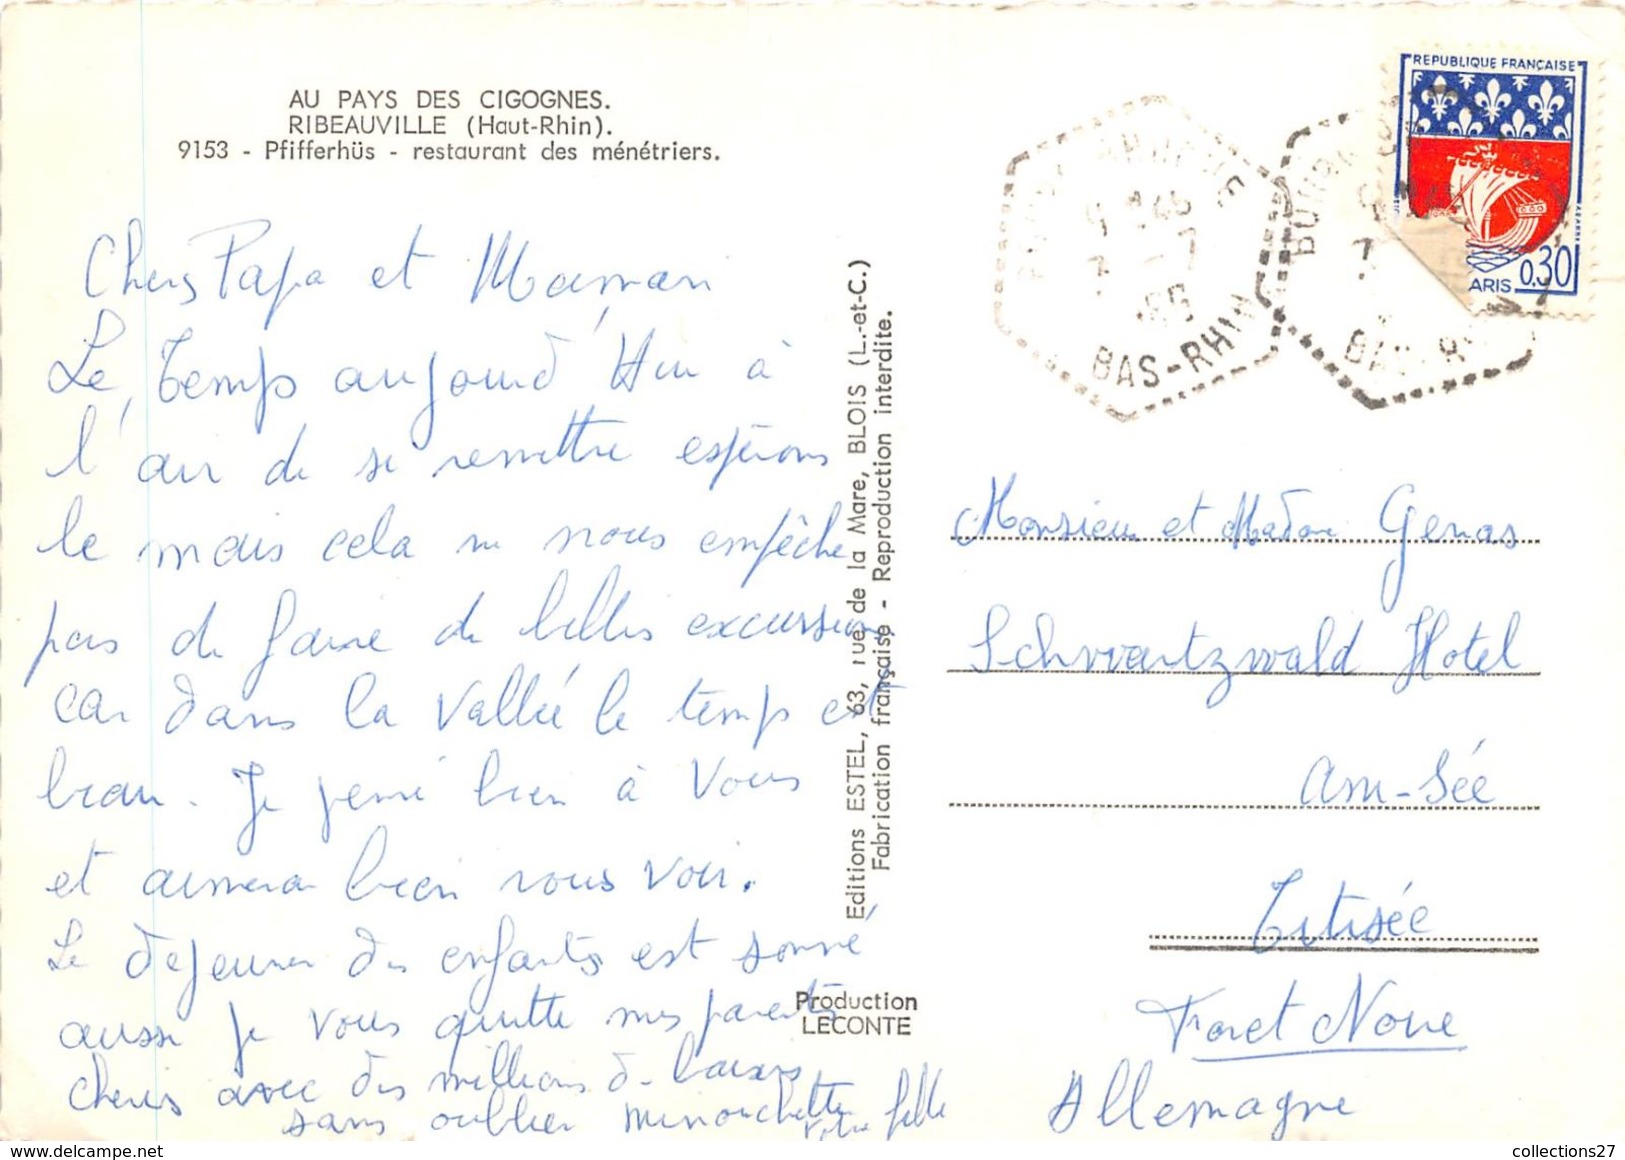 AU PAYS DES CIGOGNES.
RIBEAUVILLE (Haut-Rhin).
9153 - Pfifferhüs - restaurant des ménétriers.
Chers Papa et Maman
Le temps aujourd'hui à
l'air de se remettre espérons
le mais cela ne nous empêche
pas de faire de belles excursions
car dans la Vallée le temps est
beau. Je pense bien à Vous
et aimerai bien vous voir.
Le déjeuner des enfants est sonné
aussi je vous quitte mes parents
cheris avec des millions de baisers
sans oublier Minouchette
votre fille
Editions ESTEL, 63, rue de la Mare, BLOIS (L.-et-C.)
Fabrication française - Reproduction interdite.
Production
LECONTE
9 H45
7 - 7
BAS-RHIN
REPUBLIQUE FRANÇAISE
ARIS 0,30
Monsieur et Madame Genas
Schwartzwald Hotel
am-Sée
Titisée
Foret Noire
Allemagne
collections27